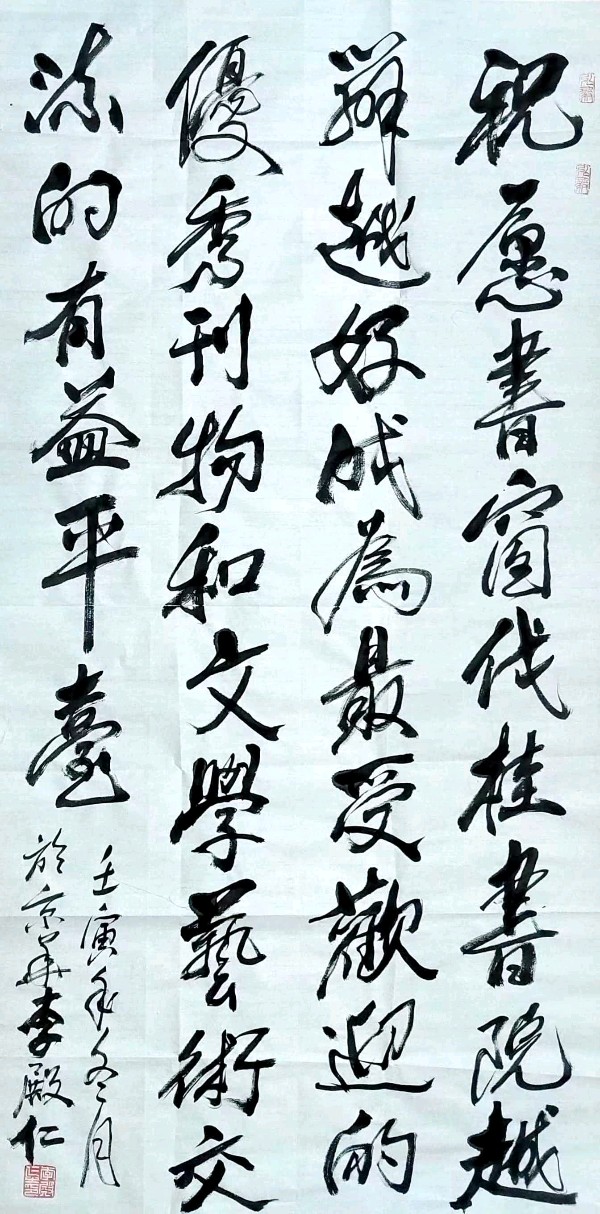 祝愿書窗伐桂書院越
辦越好成為最受歡迎的
優秀刊物和文學藝術交
流的有益平臺
壬寅年冬月
於京華李殿仁